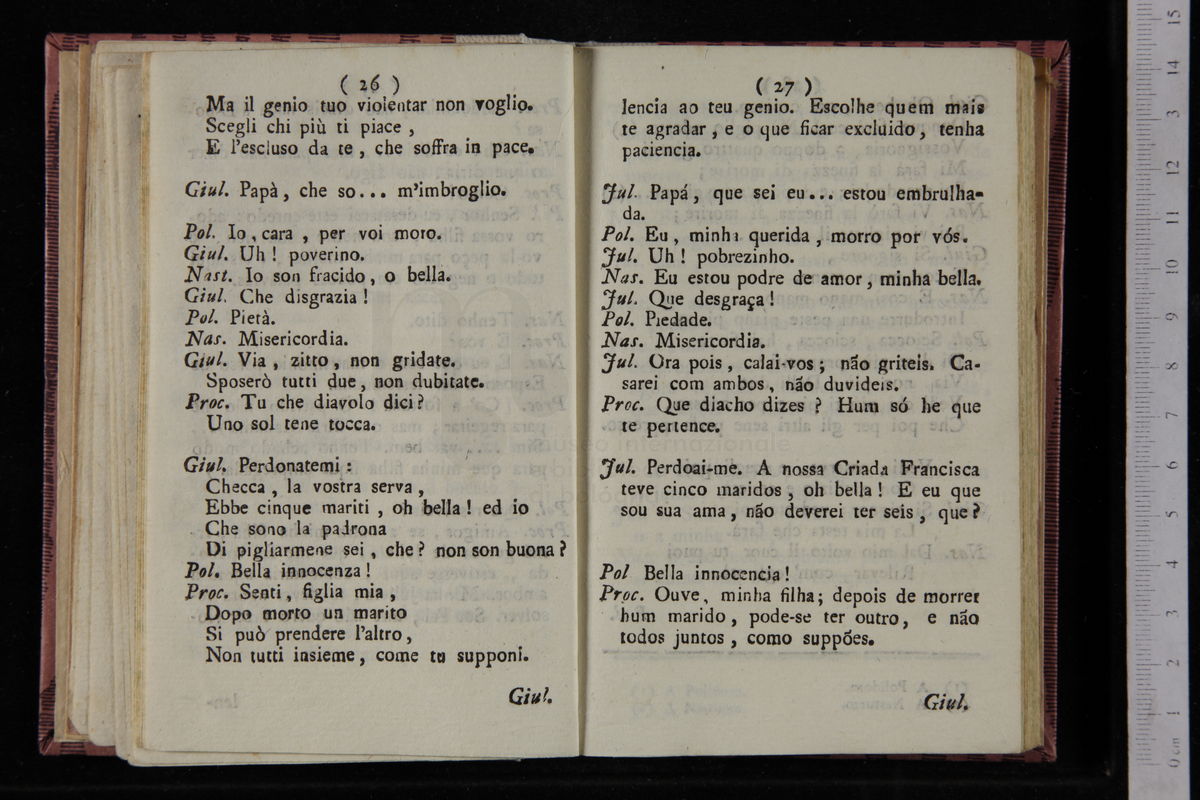 ( 26 )
Ma il genio tuo violentar non voglio.
Scegli chi più ti piace ,
E l'escluso da te , che soffra in pace.
Giul. Papà, che so... m'imbroglio.
Pol. Io, cara , per voi moro.
Giul. Uh ! poverino.
Nast. Io son fracido, o bella.
Giul. Che disgrazia !
Pol. Pietà.
Nas. Misericordia.
Giul. Via , zitto , non gridate.
Sposerò tutti due, non dubitate.
Proc. Tu che diavolo dici ?
Uno sol tene tocca.
Giul. Perdonatemi :
Checca , la vostra serva ,
Ebbe cinque mariti , oh bella ! ed io
Che sono la padrona
Di pigliarmene sei , che ? non son buona ?
Pol. Bella innocenza !
Proc. Senti, figlia mia ,
Dopo morto un marito
Si può prendere l'altro,
Non tutti insieme, come tu supponi.
Giul.
( 27 )
lencia ao teu genio. Escolhe quem mais
te agradar , e o que ficar excluido, tenha
paciencia.
Jul. Papá, que sei eu... estou embrulha-
da.
Pol. Eu, minha querida , morro por vós.
Jul. Uh ! pobrezinho.
Nas. Eu estou podre de amor, minha bella.
Jul. Que desgraça !
Pol. Piedade.
Nas. Misericordia.
Jul. Ora pois , calai-vos ; não griteis. Ca-
sarei com ambos, não duvideis.
Proc. Que diacho dizes ? Hum só he que
te pertence.
Jul. Perdoai-me. A nossa Criada Francisca
teve cinco maridos , oh bella ! E eu que
sou sua ama, não deverei ter seis, que ?
Pol Bella innocencia !
Proc. Ouve, minha filha; depois de morrer
hum marido, pode-se ter outro, e não
todos juntos , como suppões.
Giul.
0 cm 1 2 3 4 5 6 7 8 9 10 11 12 13 14 15